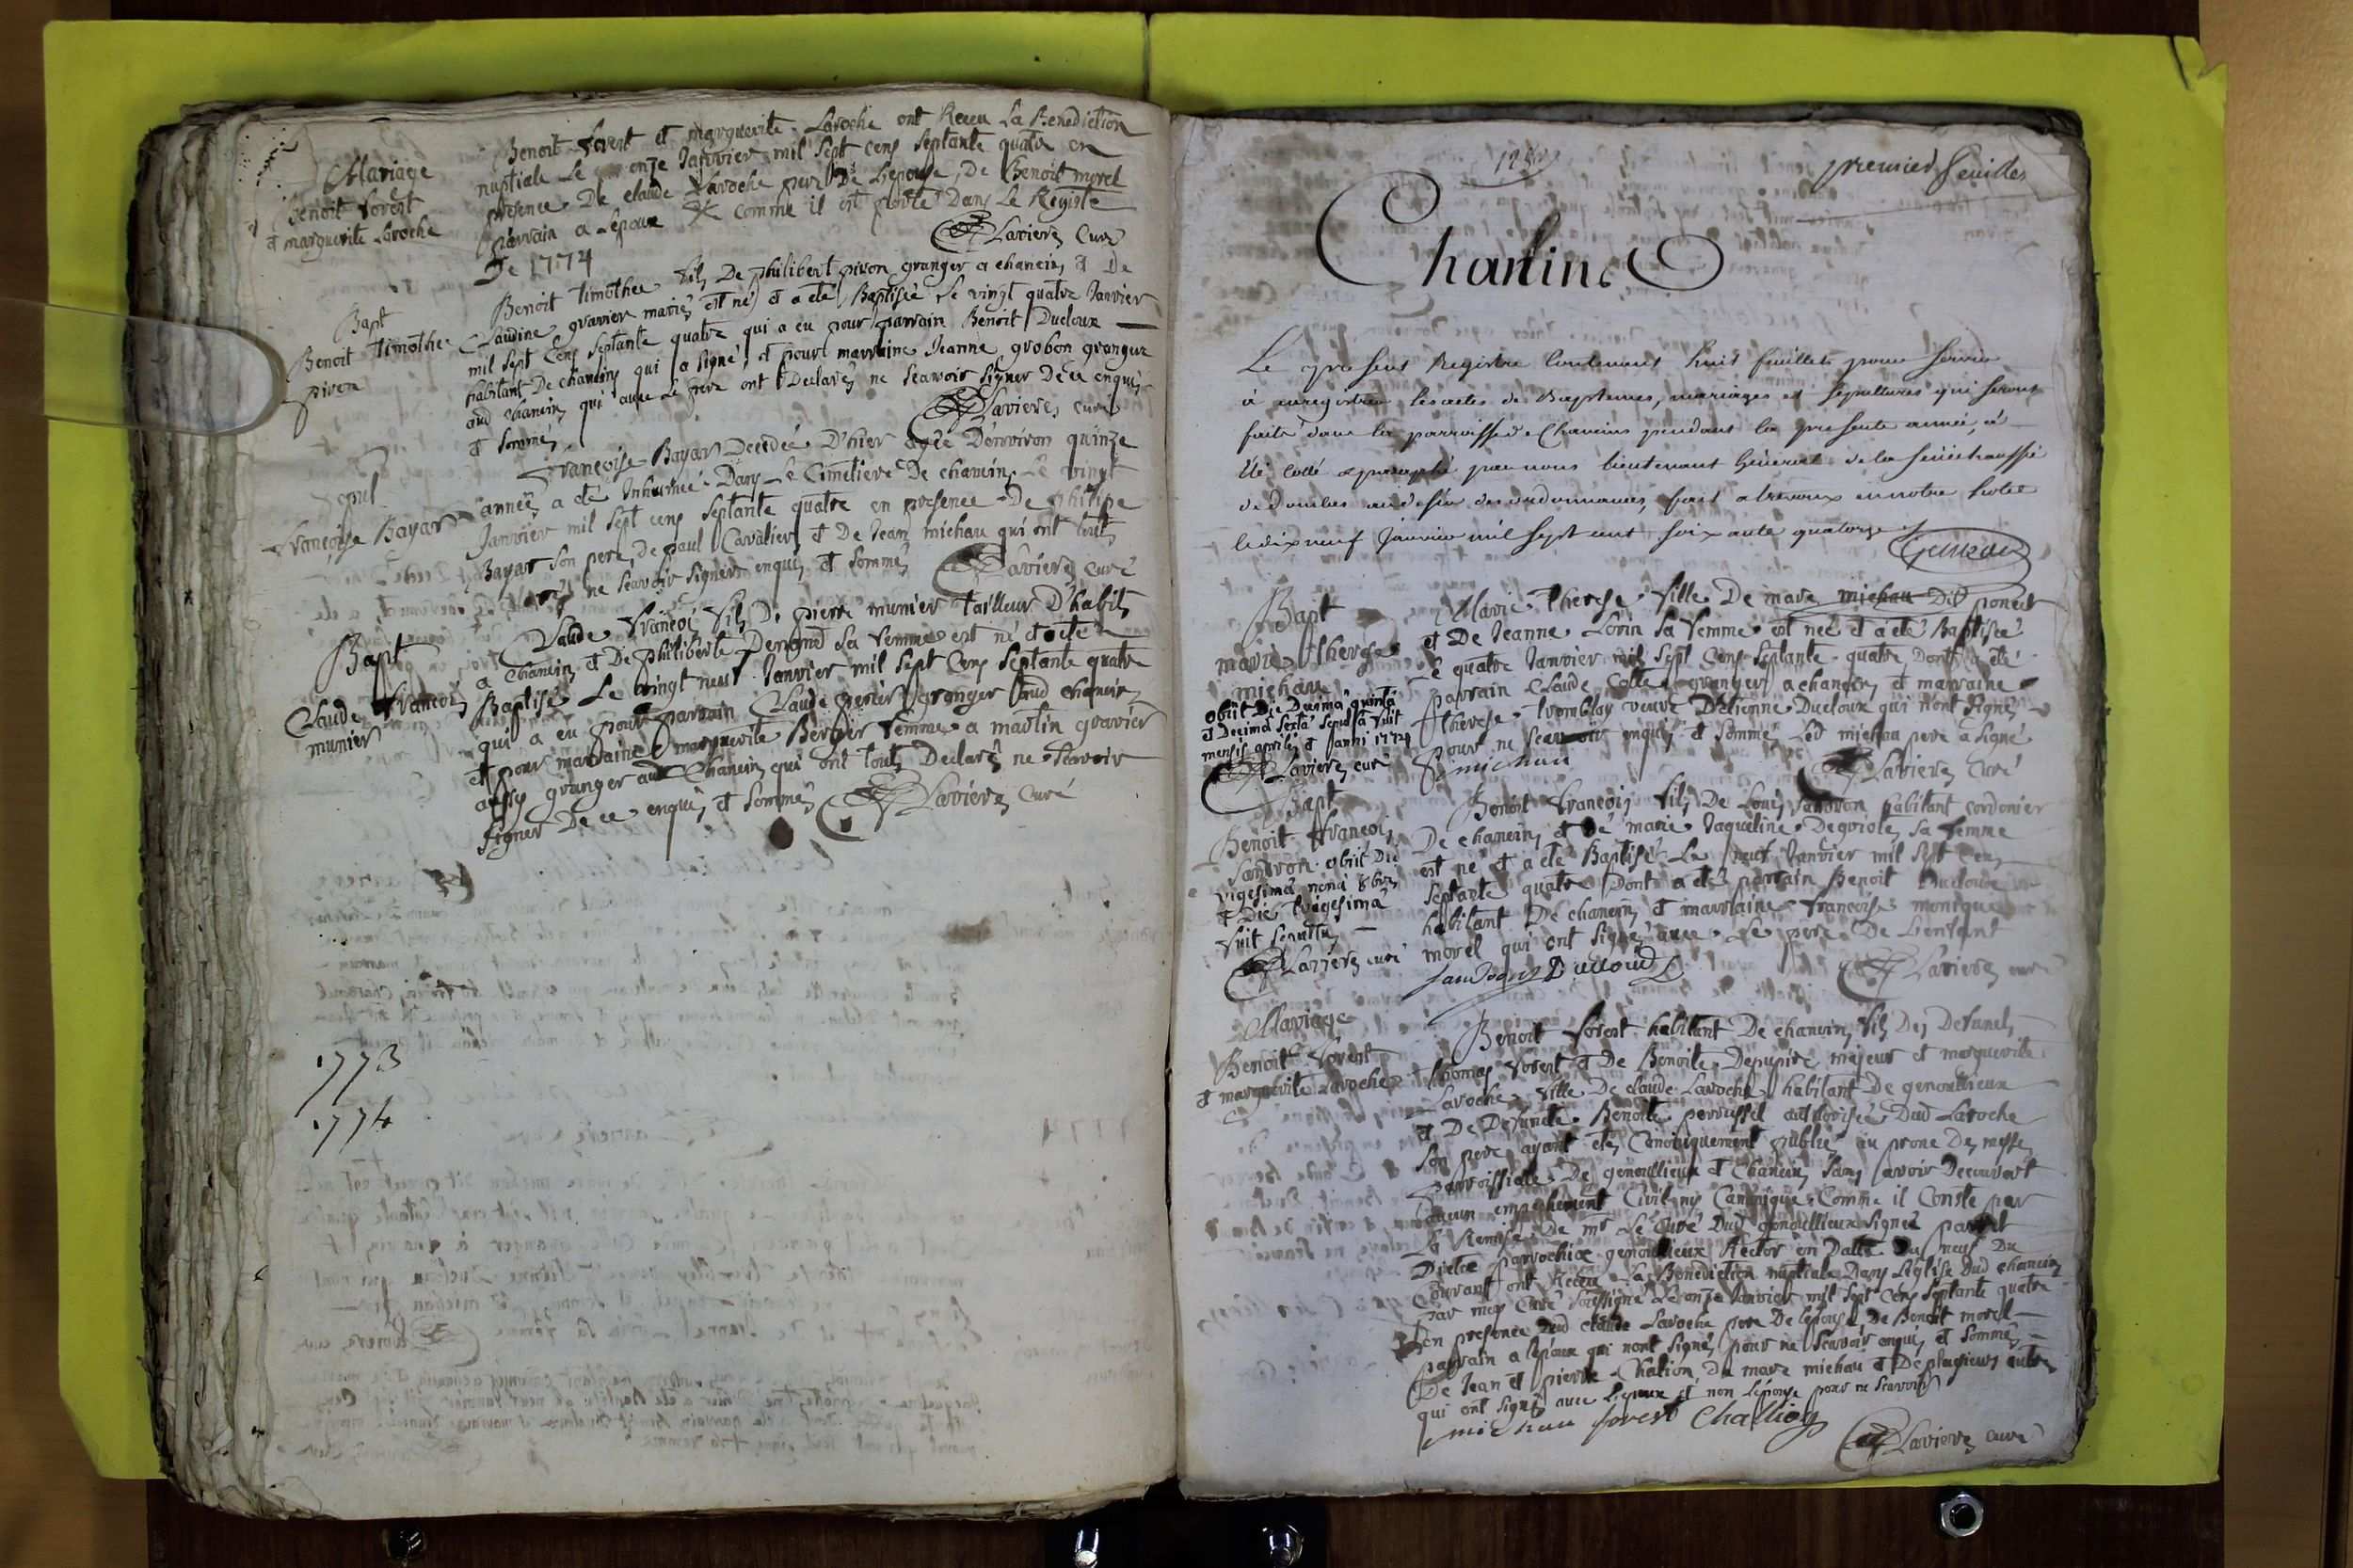 Mariage
Benoit forest
et marguerite Laroche
Benoit forest et marguerite Laroche ont Receu La Benediction
nuptiale Le onze Janvier mil Sept cens Septante quatre en
presence De claude Laroche pere De Lepouse, De Benoit morel
parrain a Lepoux &c comme il est porté Dans Le Registe
De 1774
Laviere Curé
Bapt
Benoit timothee
piron
Benoit timothee fils De philibert piron granger a chaneins et De
Claudine gravier mariés est né et a eté Baptisé Le vingt quatre Janvier
mil Sept Cens Septante quatre qui a eu pour parrain Benoit Ducloux
habitant De chaneins qui a Signé, et pour marraine Jeanne grobon grangere
aud chaneins qui avec Le pere ont Declarés ne Scavoir Signer De ce enquis
et Sommés
Laviere curé
Sepul
Françoise Bayar
Françoise Bayar Decedée D'hier agée D'environ quinze
années a eté Inhumée Dans Le Cimetiere De chaneins Le vingt
Janvier mil Sept cens Septante quatre en presence De philipe
Bayar Son pere, De paul Cavalier et De Jean michau qui ont tout
ne Scavoir Signer enquis et Sommés
Laviere curé
Bapt
Claude François
munier
Claude François fils De pierre munier tailleur D'habits
a Chaneins et De philiberte Perrond Sa femme est né et a eté
Baptisé Le vingt neuf Janvier mil Sept Cens Septante quatre
qui a eu pour parrain Claude perier granger aud chaneins
et pour marraine marguerite Berger femme a martin gravier
aussy granger aud Chaneins qui ont touts Declarés ne Scavoir
Signer De ce enquis et Sommés
Laviere Curé
1773
1774
premier feuillet
Chaneins
Le present Registre Contenant huit feuillets pour Servir
à enregistrer les actes de Baptemes, mariages et Sepultures qui Seront
faits dans la parroisse de Chaneins pendant la presente année, a
été Cotté et paraphé par nous Lieutenant Général de la Sénéchaussée
de Dombes au desir des ordonnances, fait a trevoux en notre hotel
le dix neuf Janvier mil Sept cent Soixante quatorze
Bapt
marie therese
michau
obiit Die Decima quinta
et Decima Sexta Sepulta fuit
mensis aprilis et anni 1774
Laviere curé
Marie therese fille De marc michau Dit poncet
et De Jeanne Lorin Sa femme est née et a eté Baptisée
Le quatre Janvier mil Sept Cens Septante quatre Dont a eté
parrain Claude Colle granger a chaneins et marraine
therese tromblay veuve D'Etienne Ducloux qui n'ont Signés
pour ne Scavoir enquis et Sommés Led michau pere a Signé
michau
Laviere Curé
Bapt
Benoit François
Sandron obiit Die
vigesima nona 8bris
et Die trigesima
fuit Sepultus
Laviere curé
Benoit François fils De Louis Sandron habitant cordonier
De chaneins et De marie Jaqueline Degriole Sa femme
est né et a eté Baptisé Le neuf Janvier mil Sept Cens
Septante quatre Dont a eté parrain Benoit Ducloux
habitant De chaneins et marraine Françoise monique
morel qui ont Signé avec Le pere De L'enfant
Sandron Ducloud
Laviere curé
Mariage
Benoit forest
et marguerite Laroche
Benoit forest habitant De chaneins fils Des Defunts
thomas forest et De Benoite Depupire majeur et marguerite
Laroche fille De claude Laroche habitant De genouillieux
et De Defuncte Benoite perrussel authorisée Dud Laroche
Son pere ayant etés Canoniquement publiés au prone Des messes
parroissiales De genouillieux et Chaneins Sans avoir Decouvert
aucun empechement Civil ny Canonique Comme il Conste par
La Remise De mr Le Curé Dud genouillieux Signée
Dictae parrochiae genouillieux Rector en Datte Du neuf Du
Courant ont Receu La Benediction nuptiale Dans L'église Dud chaneins
par moy Curé Soussigné Le onze Janvier mil Sept Cens Septante quatre
en presence Dud claude Laroche pere De Lepouse, De Benoit morel
parrain a lepoux qui nont Signé pour ne Scavoir enquis et Sommés
De Jean et pierre Chalion, De marc michau et De plusieurs autres
qui ont Signés avec Lepoux et non Lepouse pour ne Scavoir
michau forest Challion
Laviere curé